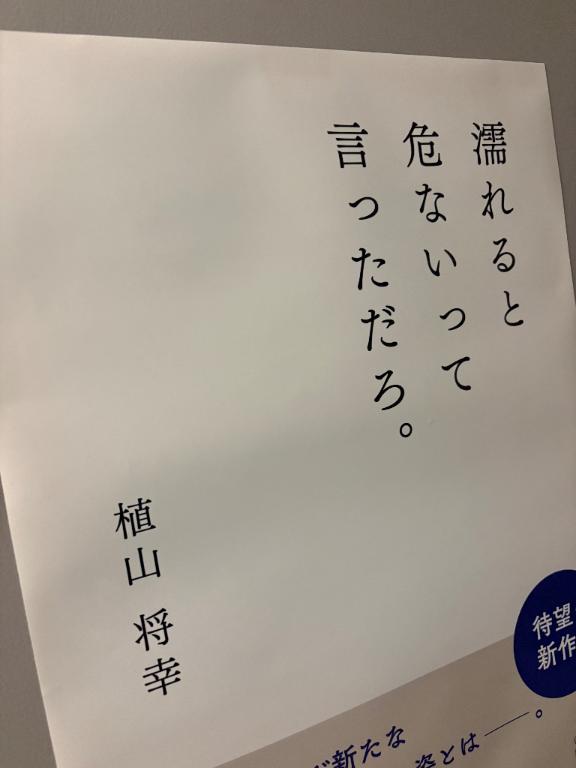 濡れると
危ないって
言っただろ。
植山 将幸
待望
新作
新たな
姿とは——。